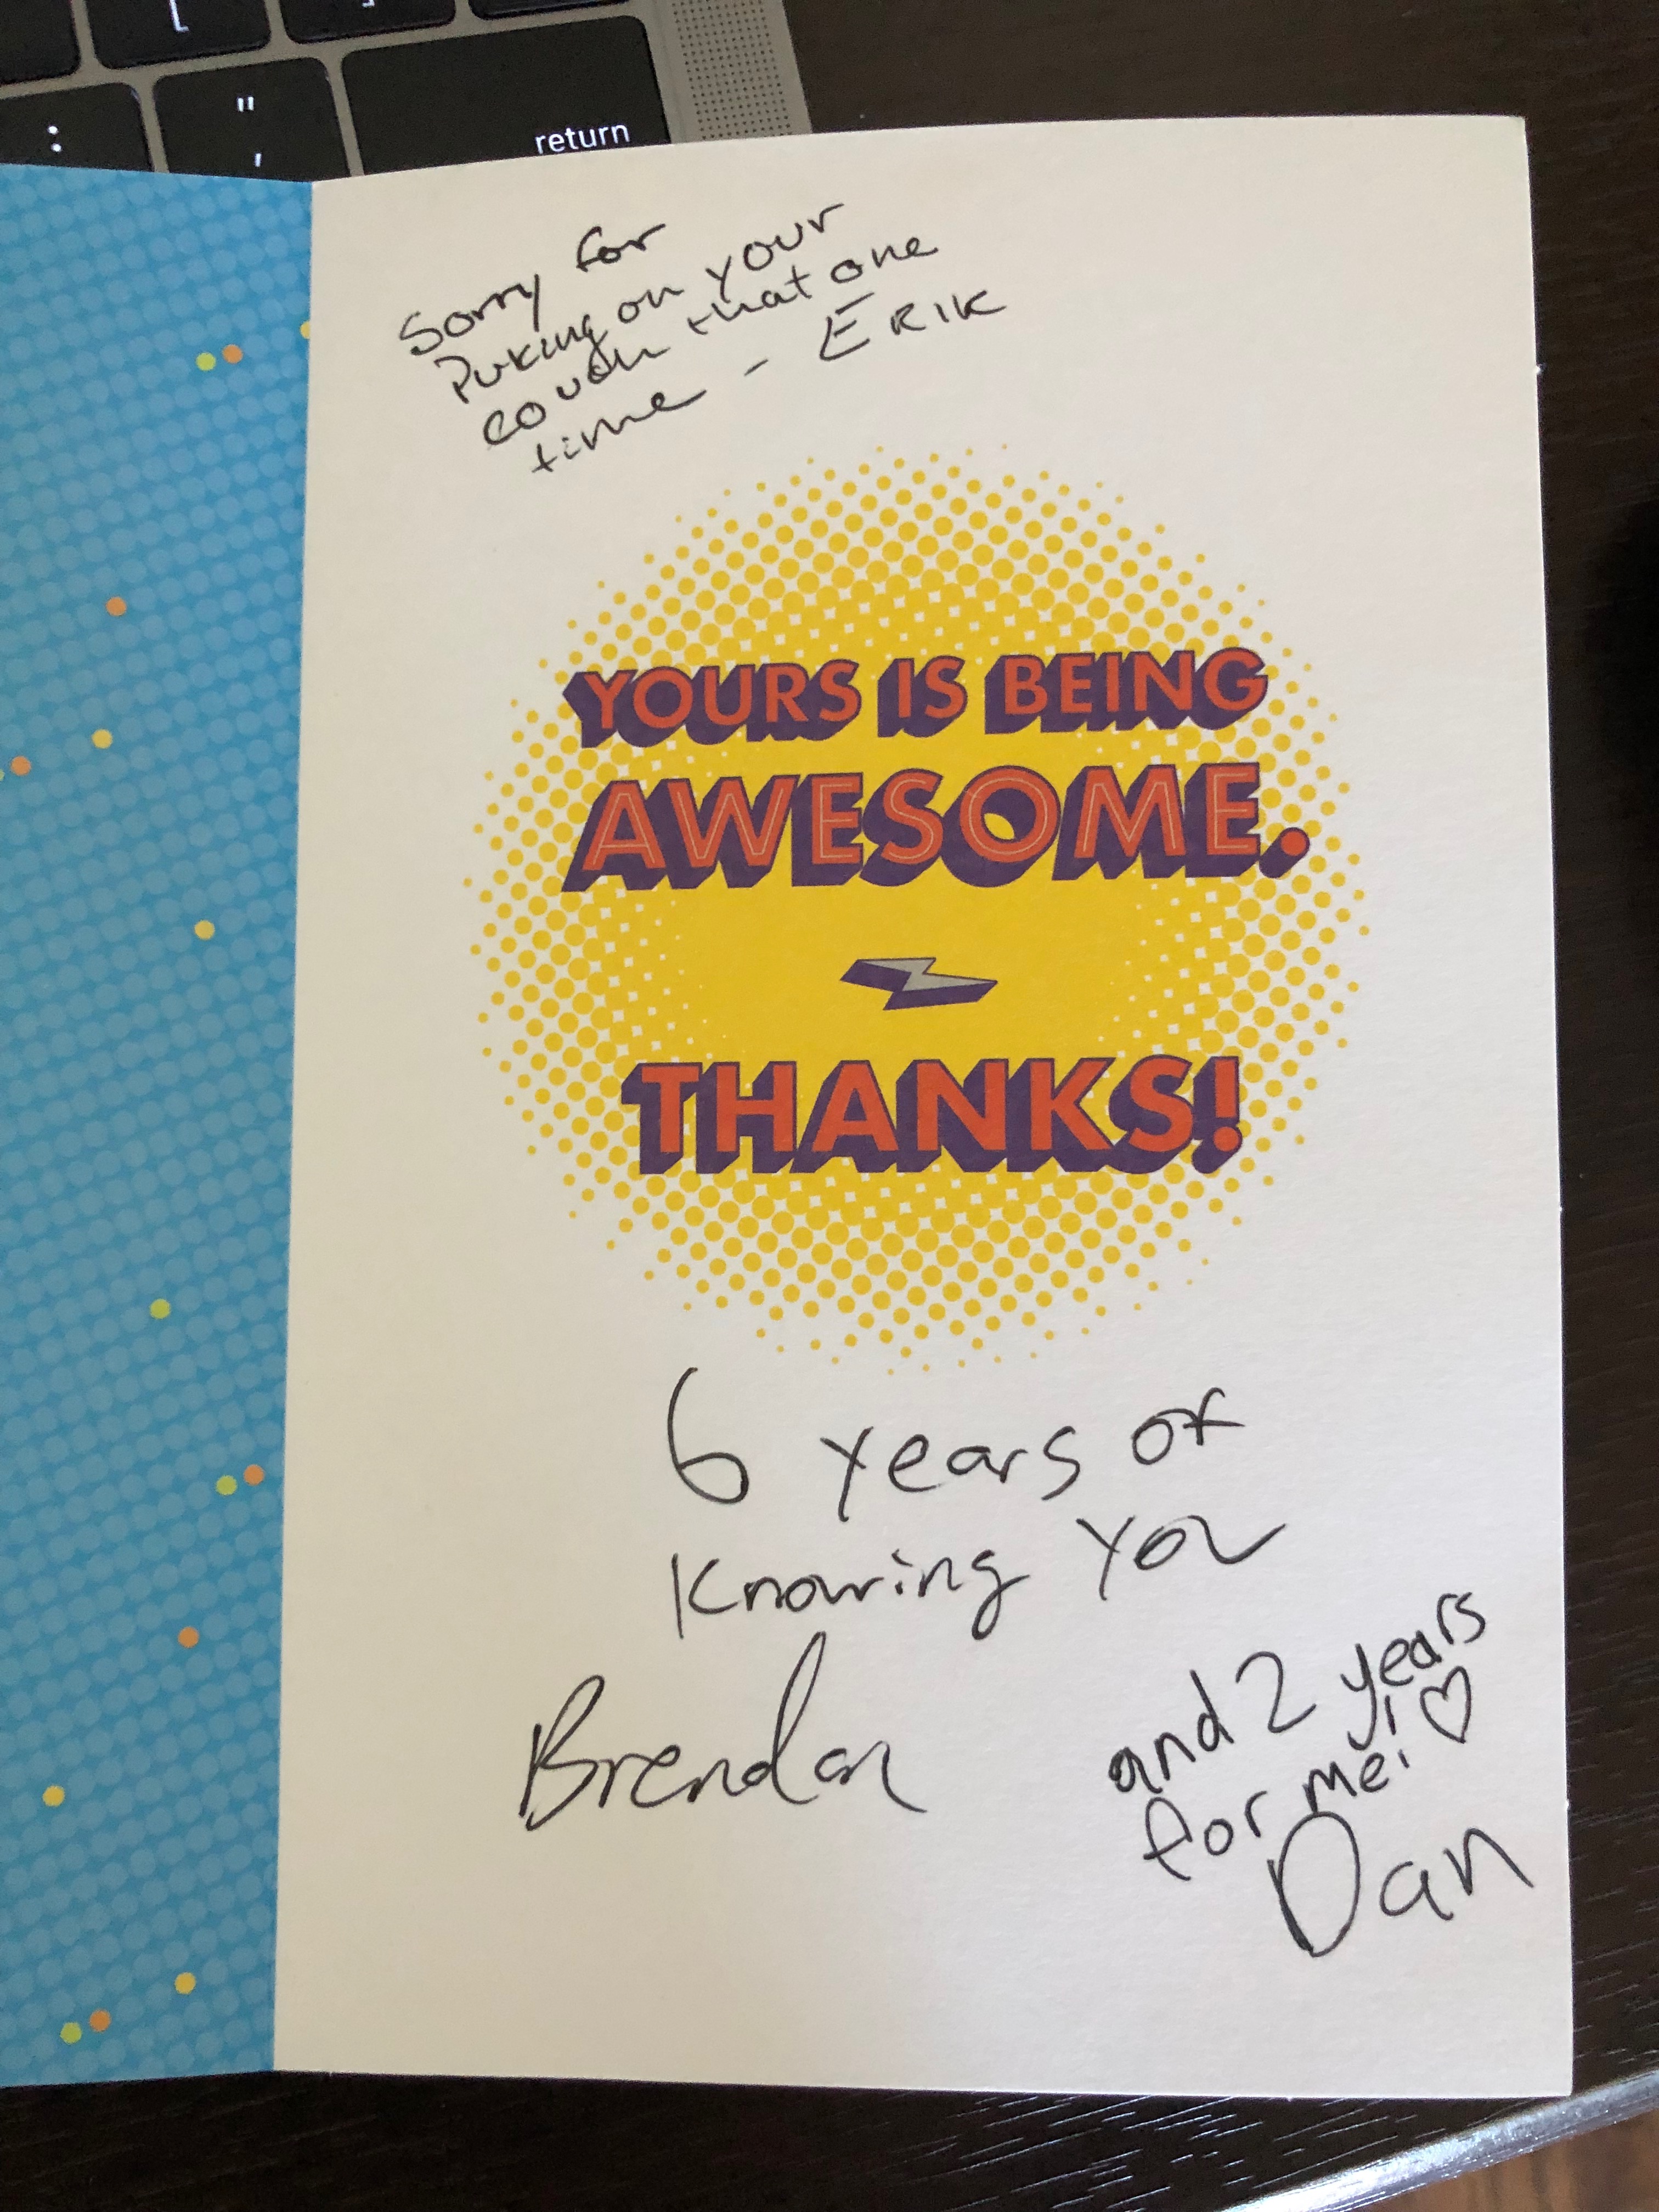 [ ]
: " '
return
Sorry for
Puking on your
couch that one
time - ERIK
YOURS IS BEING
AWESOME.
THANKS!
6 years of
Knowing you
Brendan
and 2 years
for me! ♡
Dan